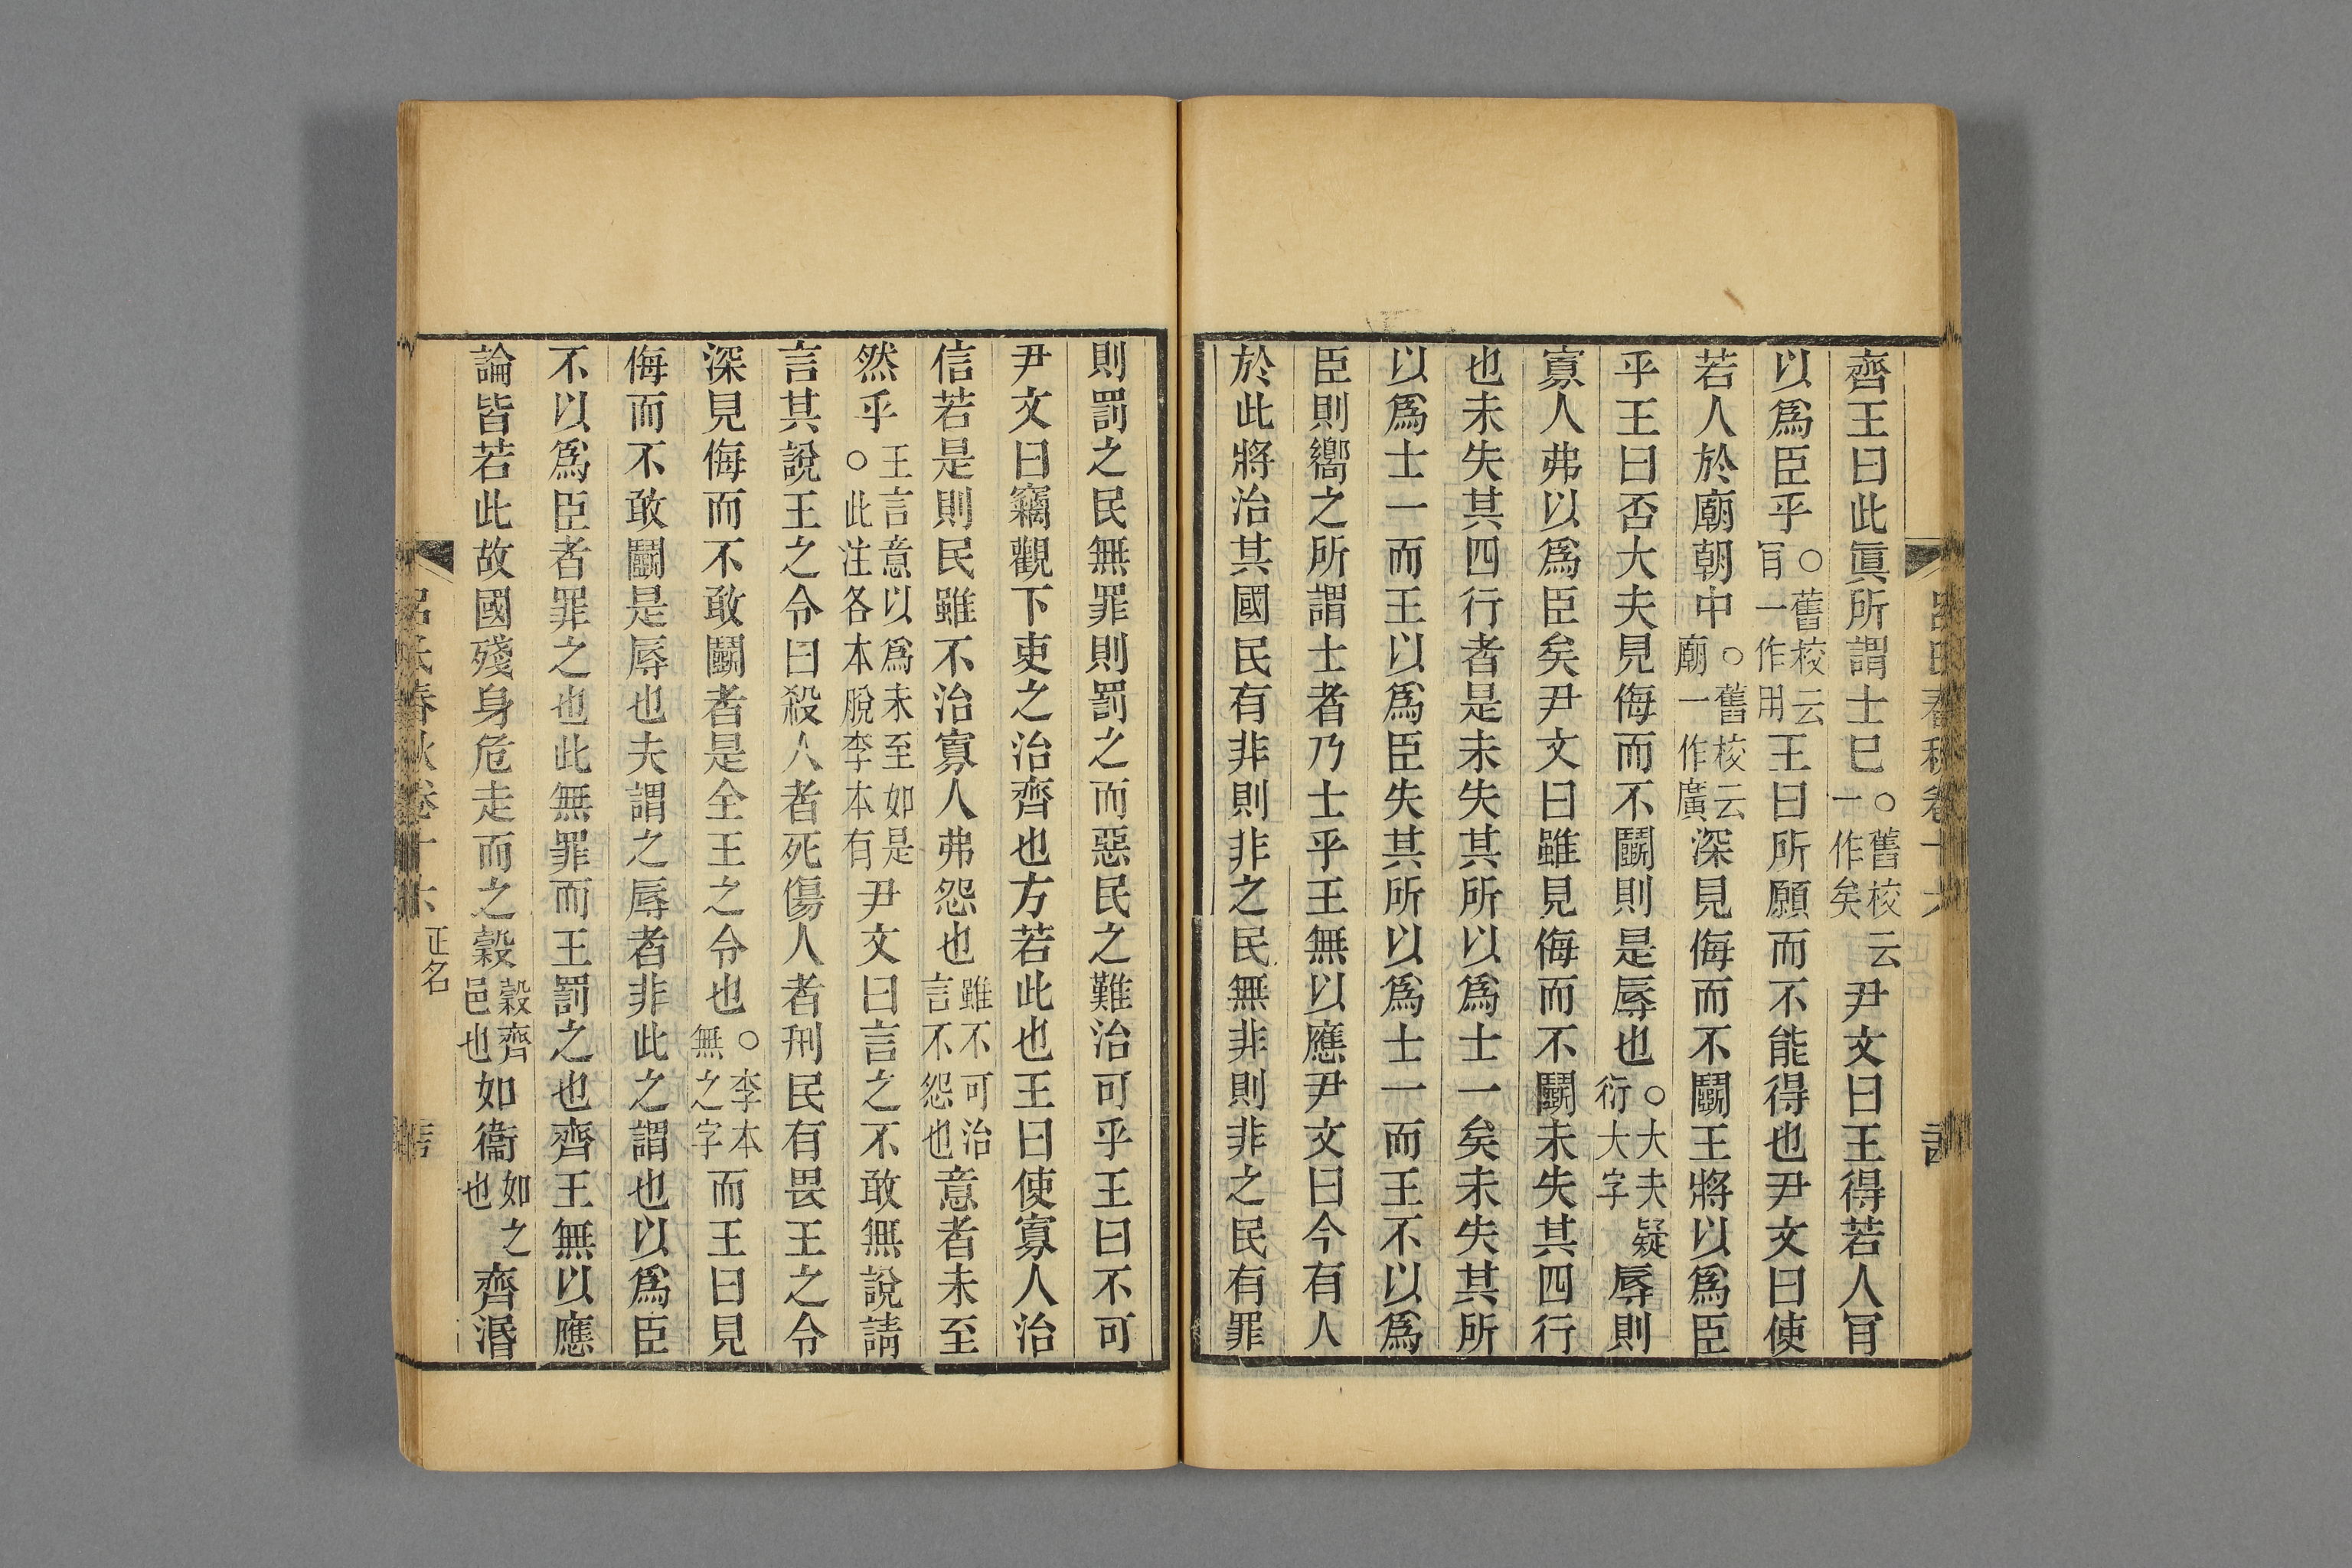 齊王曰此眞所謂士已○舊校云一作矣尹文曰王得若人肎
以爲臣乎○舊校云肎一作用王曰所願而不能得也尹文曰使
若人於廟朝中○舊校云廟一作廣深見侮而不鬭王將以爲臣
乎王曰否大夫見侮而不鬭則是辱也○大夫疑衍大字辱則
寡人弗以爲臣矣尹文曰雖見侮而不鬭未失其四行
也未失其四行者是未失其所以爲士一矣未失其所
以爲士一而王以爲臣失其所以爲士一而王不以爲
臣則嚮之所謂士者乃士乎王無以應尹文曰今有人
於此將治其國民有非則非之民無非則非之民有罪
則罰之民無罪則罰之而惡民之難治可乎王曰不可
尹文曰竊觀下吏之治齊也方若此也王曰使寡人治
信若是則民雖不治寡人弗怨也雖不可治言不怨也意者未至
然乎王言意以爲未至如是○此注各本脫李本有尹文曰言之不敢無說請
言其說王之令曰殺人者死傷人者刑民有畏王之令
深見侮而不敢鬭者是全王之令也○李本無之字而王曰見
侮而不敢鬭是辱也夫謂之辱者非此之謂也以爲臣
不以爲臣者罪之也此無罪而王罰之也齊王無以應
論皆若此故國殘身危走而之穀穀齊邑也如衞如之也齊湣
呂氏春秋卷十六 正名